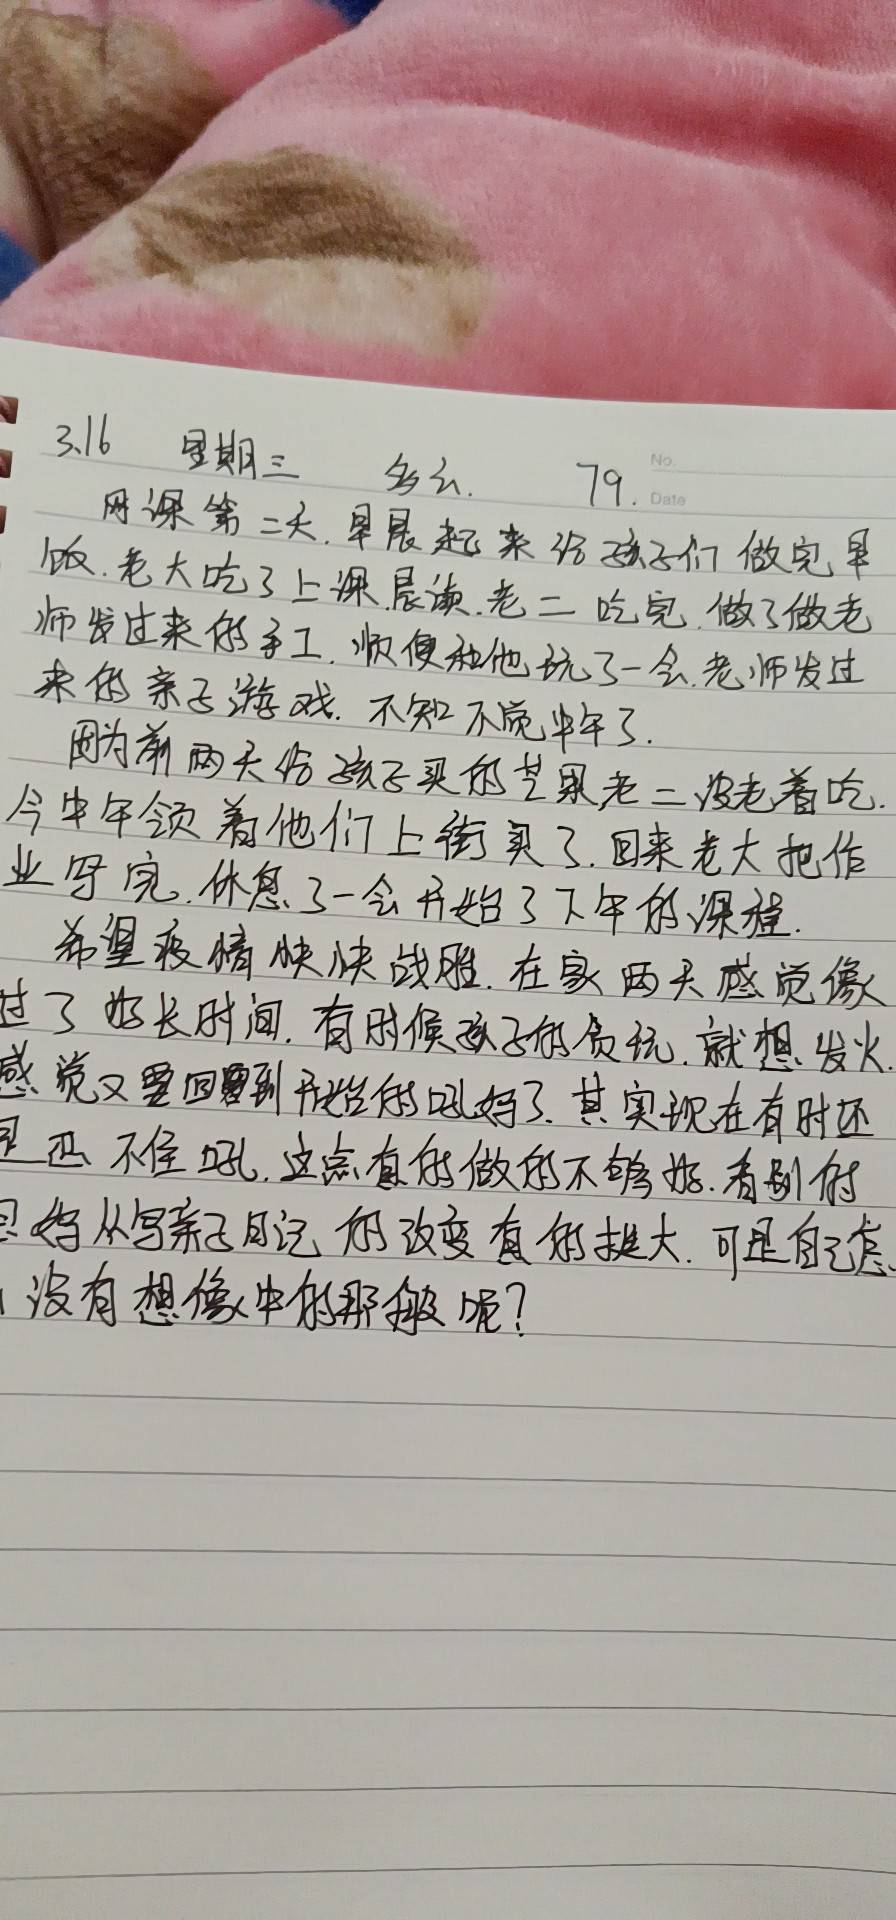 3.16 星期三 多云. 79. No.
Date
网课第二天.早晨起来给孩子们做完早
饭.老大吃了上课.晨读.老二吃完.做了做老
师发过来的手工.顺便和他玩了一会.老师发过
来的亲子游戏.不知不觉中午了.
因为前两天给孩子买的芒果老二没老着吃.
今中午领着他们上街买了.回来老大把作
业写完.休息了一会开始了下午的课程.
希望疫情快快战胜.在家两天感觉像
过了好长时间.有时候孩子的贪玩.就想发火.
感觉又要回到开始的吼妈了.其实现在有时还
是忍不住吼.这点真的做的不够好.看别的
妈从写亲子日记的改变真的挺大.可是自己怎
没有想像中的那般呢?